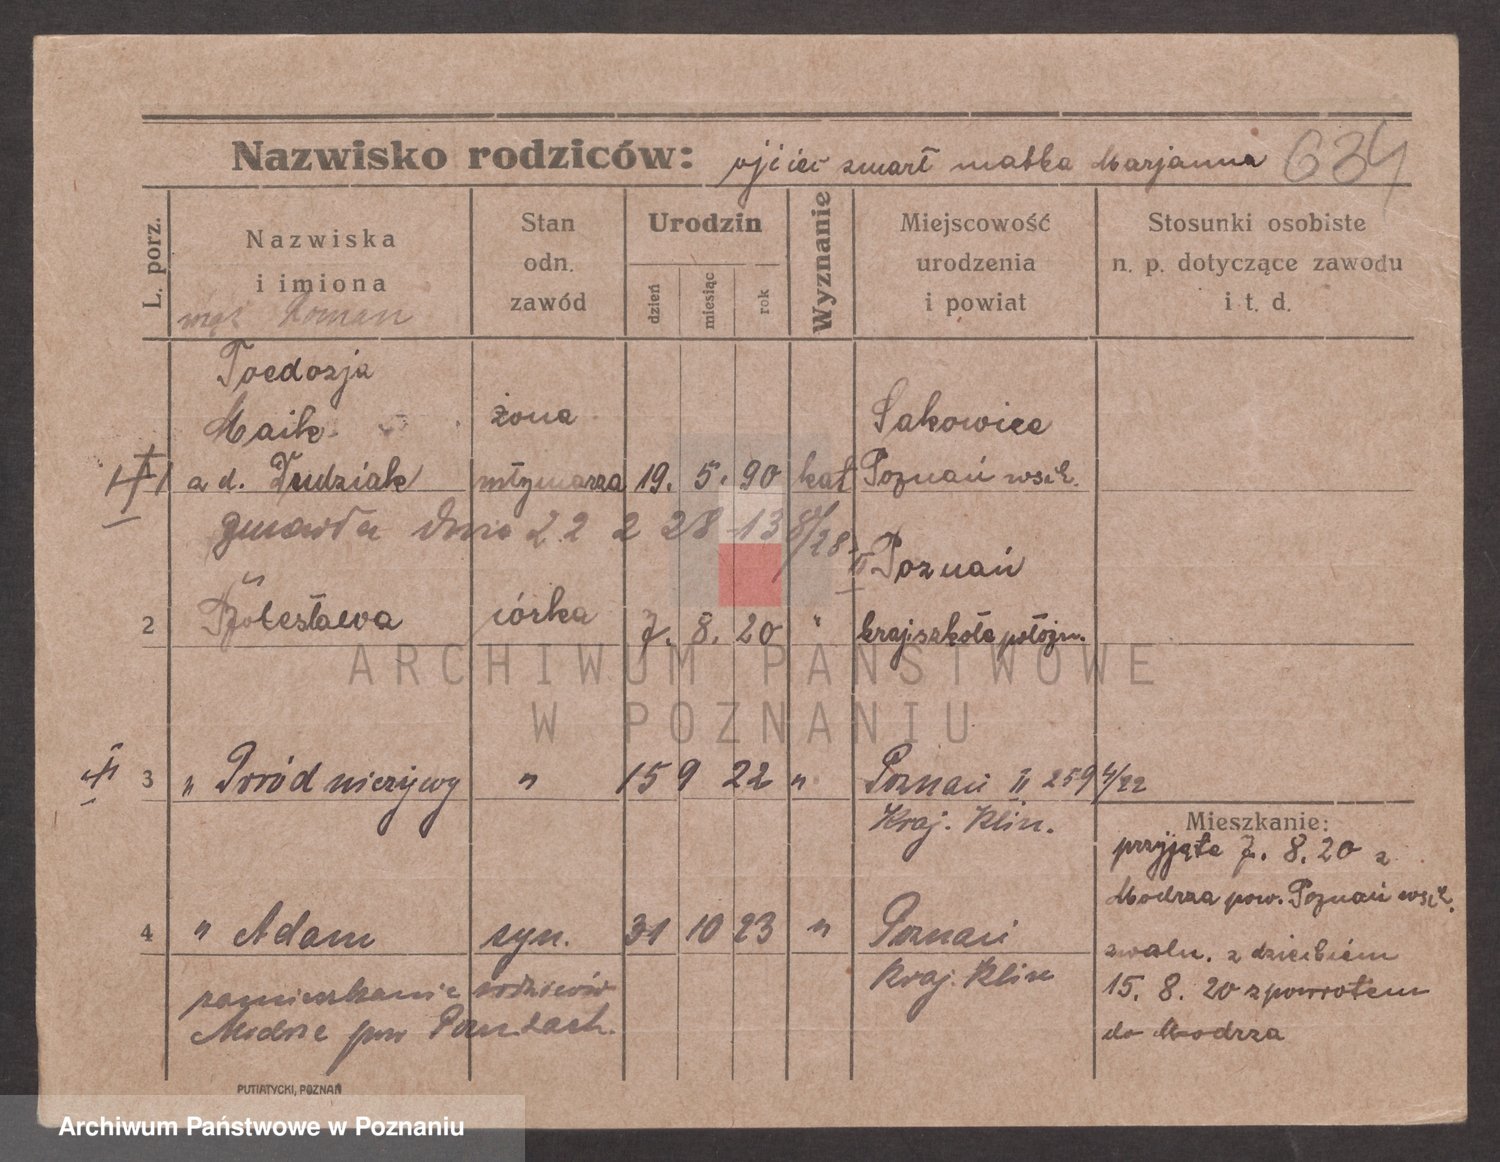 Nazwisko rodziców: ojciec zmarł matka Marjanna 634
L. porz.
Nazwiska
i imiona
mąż Roman
Stan
odn.
zawód
Urodzin
dzień
miesiąc
rok
Wyznanie
Miejscowość
urodzenia
i powiat
Stosunki osobiste
n. p. dotyczące zawodu
i t. d.
Toedozja
Maik żona Sakowice
z d. Dudziak młynarza 19. 5. 90 kat Poznań wsch.
zmarła dnia 22 2 28 13 8/28 II
Poznań
2 Bolesława córka 7. 8. 20 " kraj. szkoła położn.
3 " Poród nieżywy " 15 9 22 " Poznań II 2594/22
Kraj. Klin.
Mieszkanie:
przyjęta 7. 8. 20 z
Modrza pow. Poznań wsch.
zwoln. z dzieckiem
15. 8. 20 z powrotem
do Modrza
4 " Adam syn. 31 10 23 " Poznań
Kraj. Klin
zamieszkanie rodziców
Modrze pow Pozn. zach.
PUTIATYCKI, POZNAŃ
ARCHIWUM PAŃSTWOWE
W POZNANIU
Archiwum Państwowe w Poznaniu